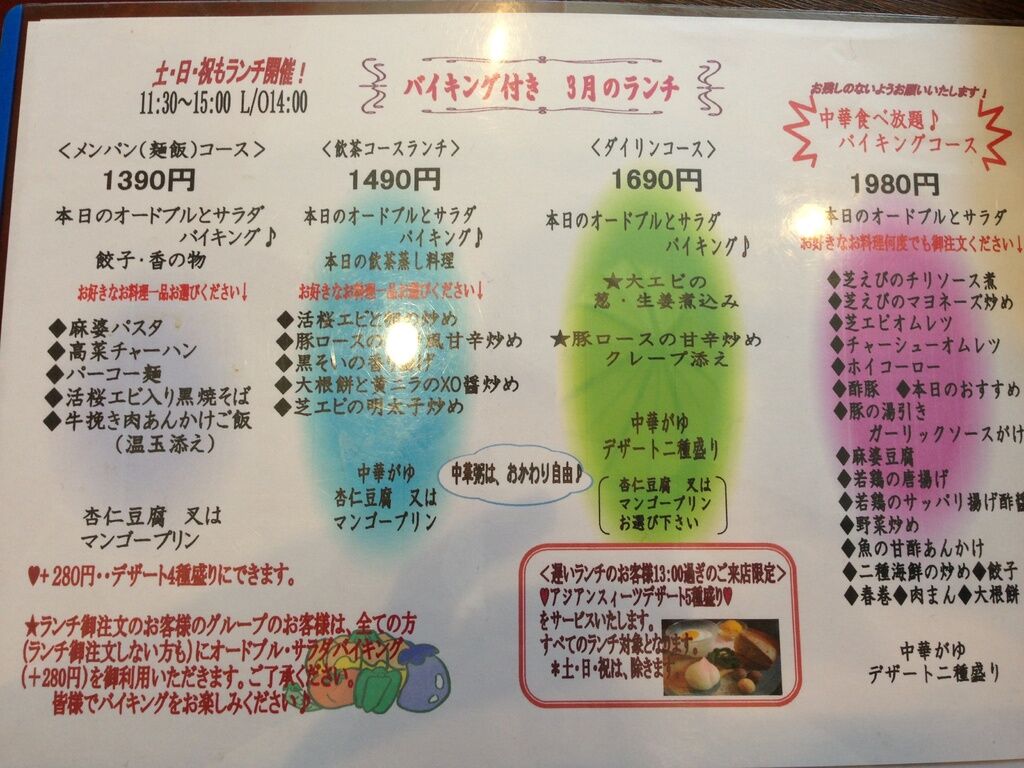 土・日・祝もランチ開催！
11:30～15:00 L/O14:00
バイキング付き 3月のランチ
お残しのないようお願いいたします！
中華食べ放題♪
バイキングコース
＜メンパン（麺飯）コース＞
1390円
本日のオードブルとサラダ
バイキング♪
餃子・香の物
お好きなお料理一品お選びください↓
◆麻婆パスタ
◆高菜チャーハン
◆パーコー麺
◆活桜エビ入り黒焼そば
◆牛挽き肉あんかけご飯
（温玉添え）
杏仁豆腐 又は
マンゴープリン
＜飲茶コースランチ＞
1490円
本日のオードブルとサラダ
バイキング♪
本日の飲茶蒸し料理
お好きなお料理一品お選びください↓
◆活桜エビと の炒め
◆豚ロースの 風甘辛炒め
◆黒そいの香り揚げ
◆大根餅と黄ニラのXO醤炒め
◆芝エビの明太子炒め
中華がゆ
杏仁豆腐 又は
マンゴープリン
中華粥は、おかわり自由♪
＜ダイリンコース＞
1690円
本日のオードブルとサラダ
バイキング♪
★大エビの
葱・生姜煮込み
★豚ロースの甘辛炒め
クレープ添え
中華がゆ
デザート二種盛り
杏仁豆腐 又は
マンゴープリン
お選び下さい
1980円
本日のオードブルとサラダ
お好きなお料理何度でも御注文ください↓
◆芝えびのチリソース煮
◆芝えびのマヨネーズ炒め
◆芝エビオムレツ
◆チャーシューオムレツ
◆ホイコーロー
◆酢豚 ◆本日のおすすめ
◆豚の湯引き
ガーリックソースがけ
◆麻婆豆腐
◆若鶏の唐揚げ
◆若鶏のサッパリ揚げ酢醤
◆野菜炒め
◆魚の甘酢あんかけ
◆二種海鮮の炒め◆餃子
◆春巻◆肉まん◆大根餅
中華がゆ
デザート二種盛り
♥+280円‥デザート4種盛りにできます。
★ランチ御注文のお客様のグループのお客様は、全ての方
(ランチ御注文しない方も)にオードブル・サラダバイキング
(+280円)を御利用いただきます。ご了承ください。
皆様でバイキングをお楽しみください♪
＜遅いランチのお客様13:00過ぎのご来店限定＞
♥アジアンスィーツデザート5種盛り♥
をサービスいたします。
すべてのランチ対象となります。
＊土・日・祝は、除きます